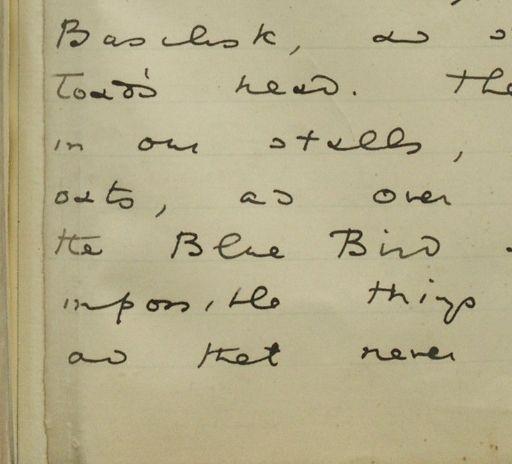 Basilisk, and
toad's head. The
in our stalls,
oats, and over
the Blue Bird
impossible things
and that never